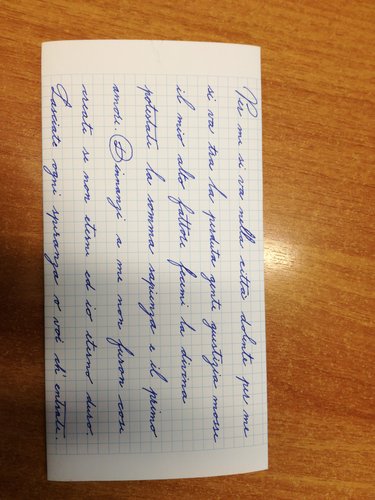 Per me si va nella città dolente per me
si va tra la perduta gente giustizia mosse
il mio alto fattore fecemi la divina
potestate la somma sapienza e il primo
amore Dinnanzi a me non furon cose
create se non eterne ed io eterno duro.
Lasciate ogni speranza o voi ch entrate.